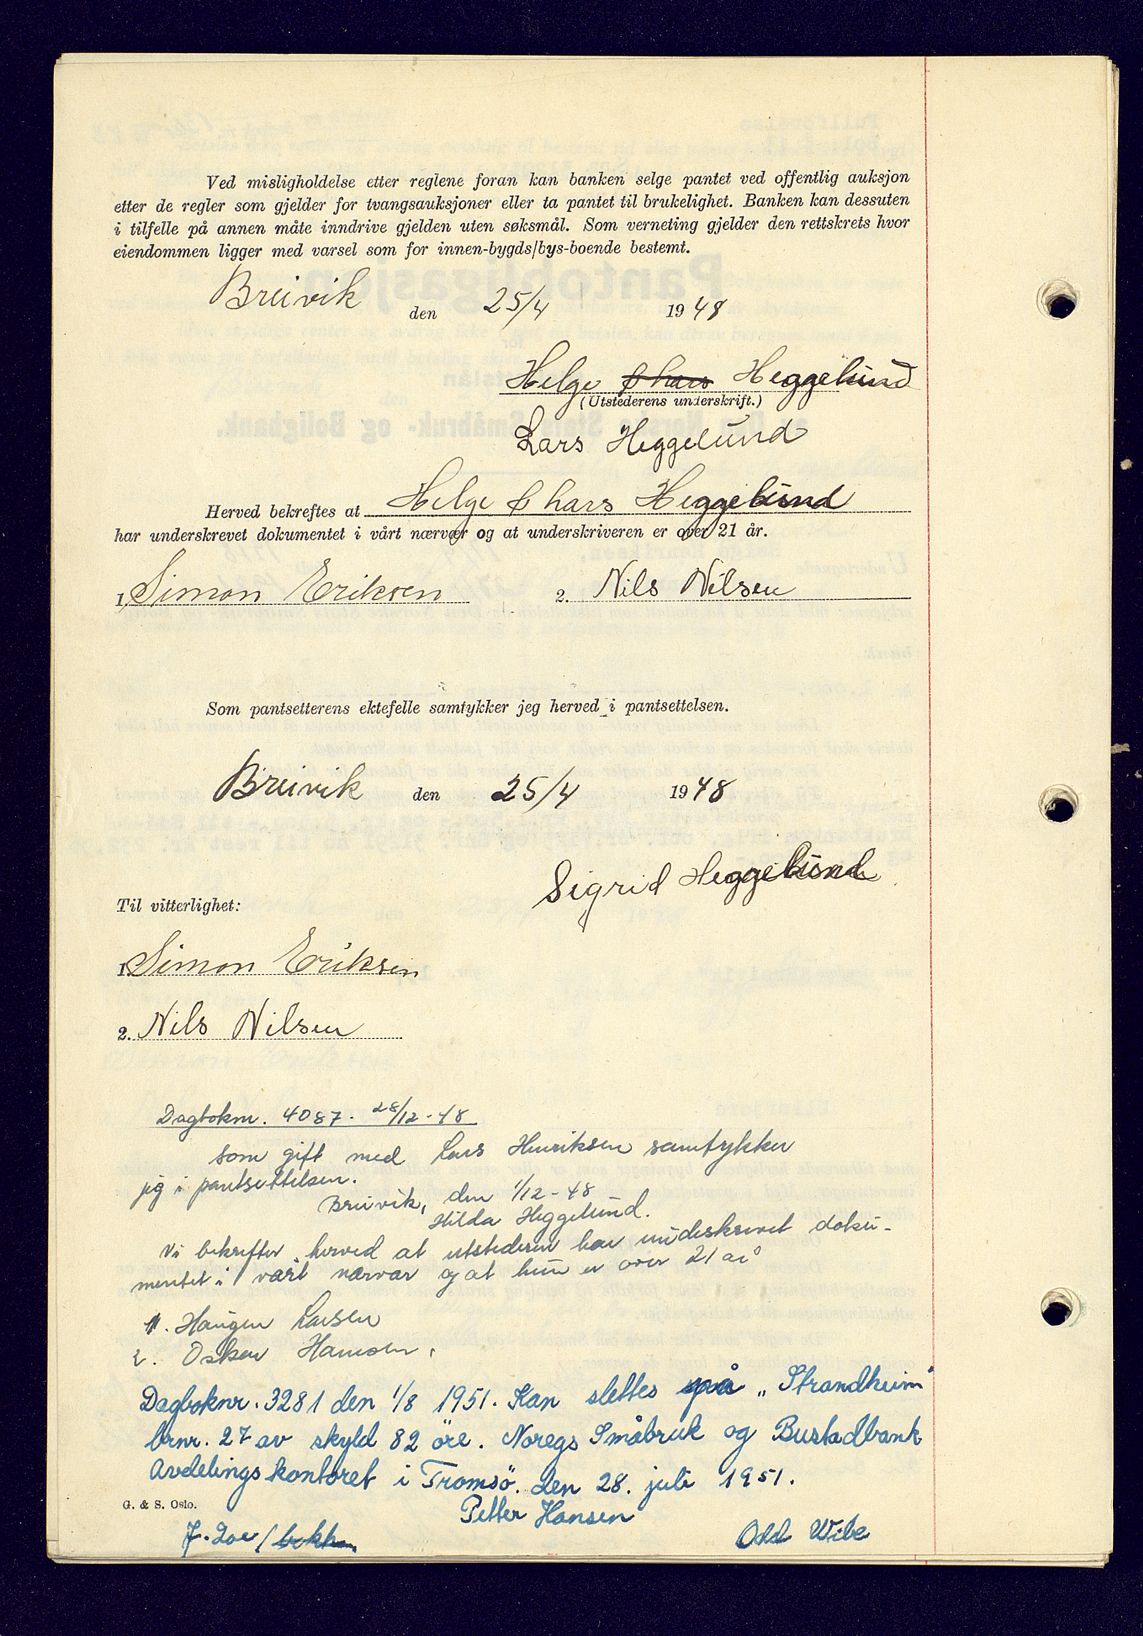 Ved misligholdelse etter reglene foran kan banken selge pantet ved offentlig auksjon
etter de regler som gjelder for tvangsauksjoner eller ta pantet til brukelighet. Banken kan dessuten
i tilfelle på annen måte inndrive gjelden uten søksmål. Som verneting gjelder den rettskrets hvor
eiendommen ligger med varsel som for innen-bygds/bys-boende bestemt.
Breivik den 25/4 1948
Helge Heggelund
(Utstederens underskrift.)
Lars Heggelund
Herved bekreftes at Helge & Lars Heggelund
har underskrevet dokumentet i vårt nærvær og at underskriveren er over 21 år.
1. Simon Eriksen 2. Nils Nilsen
Som pantsetterens ektefelle samtykker jeg herved i pantsettelsen.
Breivik den 25/4 1948
Sigrid Heggelund
Til vitterlighet:
1. Simon Eriksen
2. Nils Nilsen
Dagboknr. 4087. 28/12-48
Som gift med Lars Henriksen samtykker
jeg i pantsettelsen.
Breivik, den 1/12-48
Hilda Heggelund.
Vi bekrefter herved at utstederen har underskrevet doku-
mentet i vårt nærvær og at hun er over 21 år
1. Haugen Larsen
2. Oskar Hansen.
Dagboknr. 3281 den 1/8 1951. Kan slettes på „Strandheim"
brnr. 27 av skyld 82 öre. Noregs Småbruk og Bustadbank
Avdelingskontoret i Tromsö. den 28. juli 1951.
G. & S. Oslo.
Petter Hansen
Odd Wibe